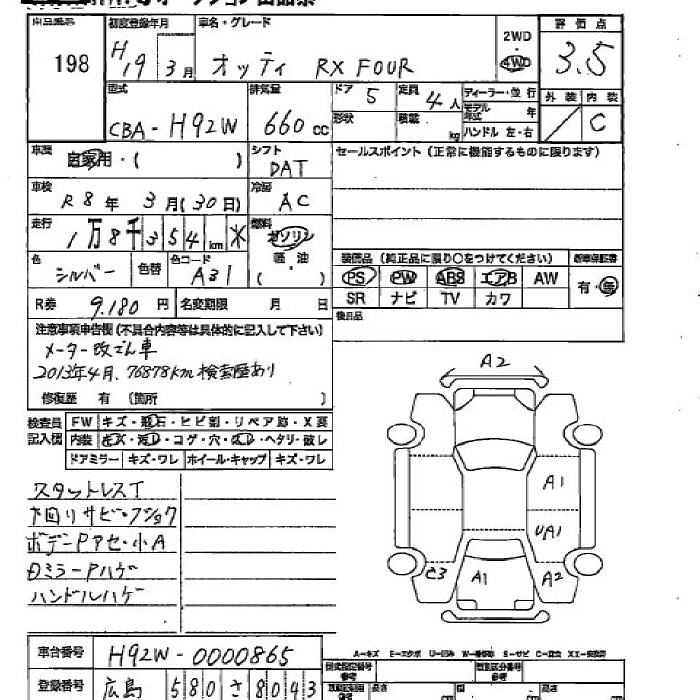 198
初度登録年月
H19 3月
車名・グレード
オッティ RX FOUR
2WD
・
4WD
評価点
3.5
型式
CBA-H92W
排気量
660 cc
ドア 5
定員 4人
ディーラー・並行
モデル年式 年
形状
積載 kg
ハンドル 左・右
外装 内装
C
車歴
自家用・( )
シフト
DAT
セールスポイント (正常に機能するものに限ります)
車検
R8年 3月(30日)
冷房
AC
走行
1万8千354km *
燃料
ガソリン
軽・油
( )
装備品 (純正品に限り○をつけてください)
新車保証書
色
シルバー
色替
色コード
A31
PS PW ABS エアB AW
有・無
SR ナビ TV カワ
R券 9,180円
名変期限 月 日
後日品
注意事項申告欄 (不具合内容等は具体的に記入して下さい)
メーター改ざん車
2013年4月、76878km検索歴あり
修復歴 有 (箇所 )
検査員
記入欄
FW キズ・飛石・ヒビ割・リペア跡・X要
内装 ・コゲ・穴・・ヘタリ・破レ
ドアミラー キズ・ワレ ホイール・キャップ キズ・ワレ
スタットレスT
下回リサビ・フショク
ボデーPアセ・小A
Dミラー Pハゲ
ハンドルハゲ
A2
A1
UA1
C3
A1
A2
車台番号
H92W-0000865
登録番号
広島 580 さ 8043
A-キズ E-エクボ U-凹み W-補修跡 S-サビ C-腐食 XX-交換済